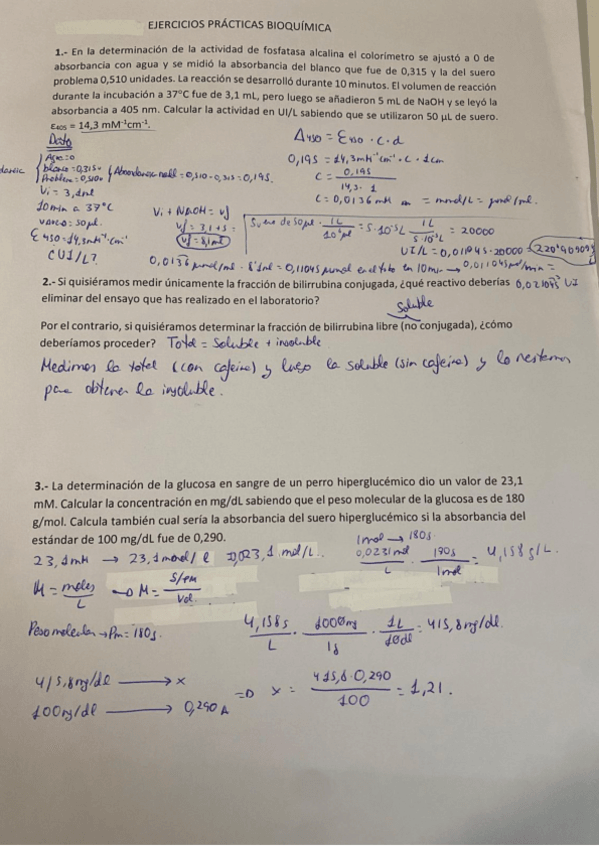 EJERCICIOS PRÁCTICAS BIOQUÍMICA
1.- En la determinación de la actividad de fosfatasa alcalina el colorímetro se ajustó a 0 de
absorbancia con agua y se midió la absorbancia del blanco que fue de 0,315 y la del suero
problema 0,510 unidades. La reacción se desarrolló durante 10 minutos. El volumen de reacción
durante la incubación a 37°C fue de 3,1 mL, pero luego se añadieron 5 mL de NaOH y se leyó la
absorbancia a 405 nm. Calcular la actividad en UI/L sabiendo que se utilizaron 50 µL de suero.
ε405 = 14,3 mM-1cm-1.
Datos
Agua=0
Blanco=0,315
Problema=0,510
Absorbancia reall=0,510-0,315=0,195
Vi = 3,1ml
10min a 37°C
vsuero: 50µl
E450=14,3mM-1·cm-1
¿UI/L?
A450 = E450 · c · d
0,195 = 14,3mM-1cm-1 · c · 1cm
c = 0,195 / 14,3 · 1
c = 0,0136 mM = mmol/L = µmol/ml.
Vi + NaOH = vf
vf = 3,1+5 =
vf = 8,1ml
Suero de 50µl · 1L / 10^6 µl = 5·10-5L
1L / 5·10-5L = 20000
UI/L = 0,011045·20000 = 220'9090909
0,0136 µmol/ml · 8'1ml = 0,11045µmol en el tubo en 10min → 0,011045µmol/min =
2.- Si quisiéramos medir únicamente la fracción de bilirrubina conjugada, ¿qué reactivo deberías
eliminar del ensayo que has realizado en el laboratorio?
Soluble
Por el contrario, si quisiéramos determinar la fracción de bilirrubina libre (no conjugada), ¿cómo
deberíamos proceder? Total = Soluble + insoluble
Medimos la total (con cafeína) y luego la soluble (sin cafeína) y lo restamos
para obtener la insoluble.
3.- La determinación de la glucosa en sangre de un perro hiperglucémico dio un valor de 23,1
mM. Calcular la concentración en mg/dL sabiendo que el peso molecular de la glucosa es de 180
g/mol. Calcula también cual sería la absorbancia del suero hiperglucémico si la absorbancia del
estándar de 100 mg/dL fue de 0,290.
23,1mM → 23,1mmol/l 0,023,1 mol/L.
1mol → 180g
0,0231mol / L · 180g / 1mol = 4,158g/L.
M = moles / L → M = g/pm / Vol.
Peso molecular → Pm = 180g.
4,158g / L · 1000mg / 1g · 1L / 10dl = 415,8mg/dl.
415,8mg/dl → x
100mg/dl → 0,290A
=> x = 415,8·0,290 / 100 = 1,21.